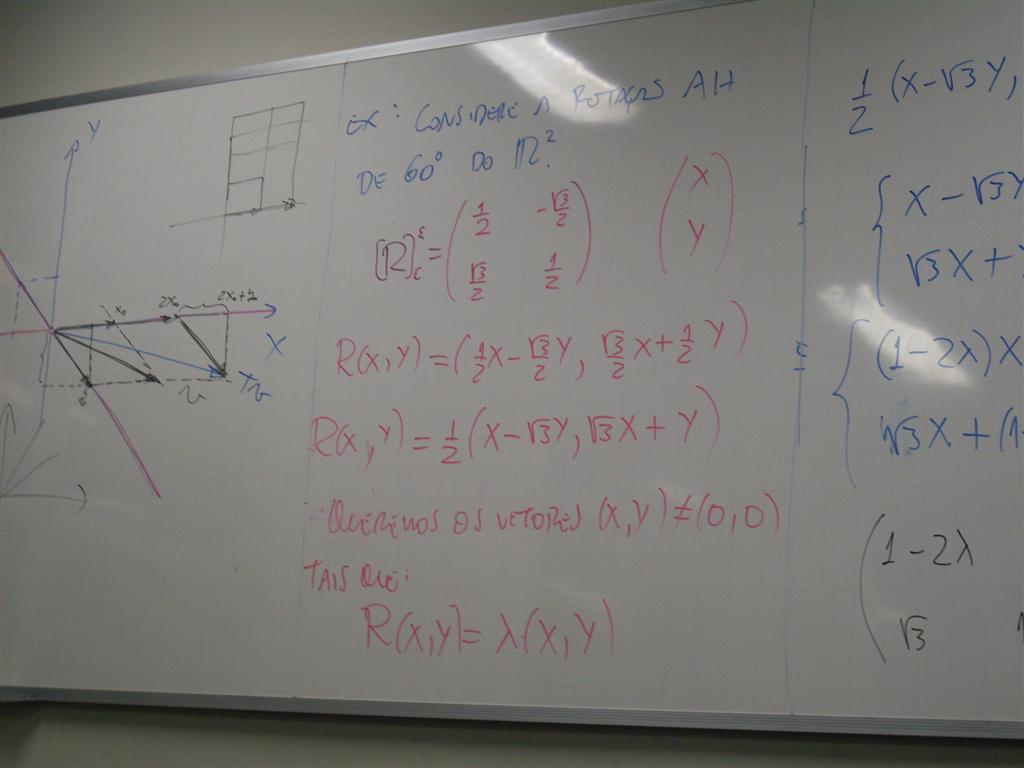 Y
X
X₀
2X₀
EX: CONSIDERE A ROTAÇÃO AH
DE 60° DO ℝ².
[R] = ( 1/2 -√3/2
√3/2 1/2 )
( X
Y )
R(X,Y) = (1/2 X - √3/2 Y, √3/2 X + 1/2 Y)
R(X,Y) = 1/2 (X - √3Y, √3X + Y)
QUEREMOS OS VETORES (X,Y) ≠ (0,0)
TAIS QUE:
R(X,Y) = λ(X,Y)
1/2 (X - √3Y,
{ X - √3Y
√3X +
{ (1 - 2λ)X
√3X + (1-
( 1 - 2λ
√3